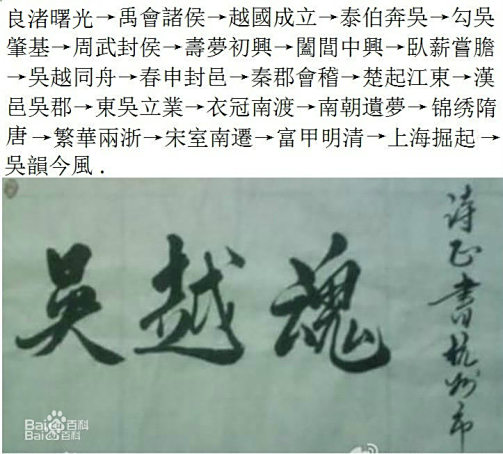 良渚曙光→禹會諸侯→越國成立→泰伯奔吳→勾吳
肇基→周武封侯→壽夢初興→闔閭中興→臥薪嘗膽
→吳越同舟→春申封邑→秦郡會稽→楚起江東→漢
邑吳郡→東吳立業→衣冠南渡→南朝遺夢→锦绣隋
唐→繁華兩浙→宋室南遷→富甲明清→上海掘起→
吳韻今風.
吳越魂
詩正書杭州市
Bai百科
Bai百科